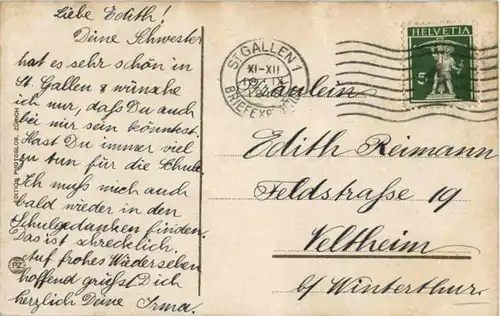 Liebe Edith!
Deine Schwester
hat es sehr schön in
St. Gallen & wünsche
ich nur, daß Du auch
bei mir sein könntest.
Hast Du immer viel
zu tun für die Schule.
Ich muß mich auch
bald wieder in den
Schulgedanken finden.
Das ist schrecklich.
Auf frohes Wiedersehen
hoffend grüßt Dich
herzlich Deine Irma.
EDITION PHOTOGLOB, ZÜRICH
ST. GALLEN 1
XI-XII
BRIEFEXP.
HELVETIA
5
Fräulein
Edith Reimann
Feldstraße 19
Veltheim
b/ Winterthur.